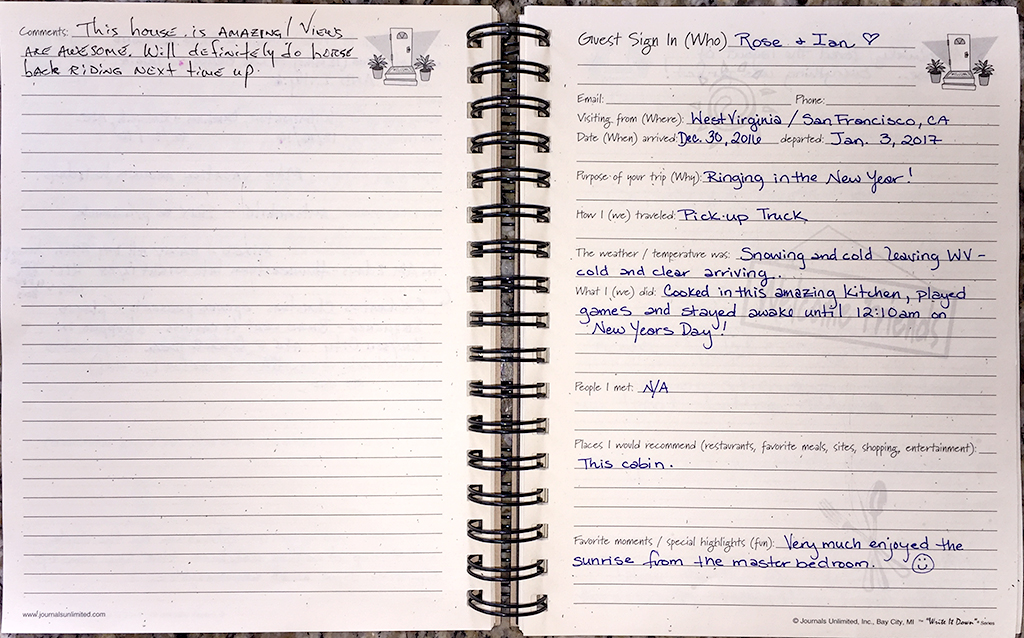 Comments: This house is AMAZING! VIEWS
ARE AWESOME. Will definitely do horse
back RIDING NEXT time up.
www.journalsunlimited.com
Guest Sign In (Who) Rose & Ian ♡
Email: Phone:
Visiting from (Where): West Virginia / San Francisco, CA
Date (When) arrived: Dec. 30, 2016 departed: Jan. 3, 2017
Purpose of your trip (Why): Ringing in the New Year!
How I (we) traveled: Pick-up Truck
The weather / temperature was: Snowing and cold leaving WV -
cold and clear arriving.
What I (we) did: Cooked in this amazing kitchen, played
games and stayed awake until 12:10am on
New Years Day!
People I met: N/A
Places I would recommend (restaurants, favorite meals, sites, shopping, entertainment):
This cabin.
Favorite moments / special highlights (fun): Very much enjoyed the
sunrise from the master bedroom. ☺
© Journals Unlimited, Inc., Bay City, MI ™ "Write It Down"® Series